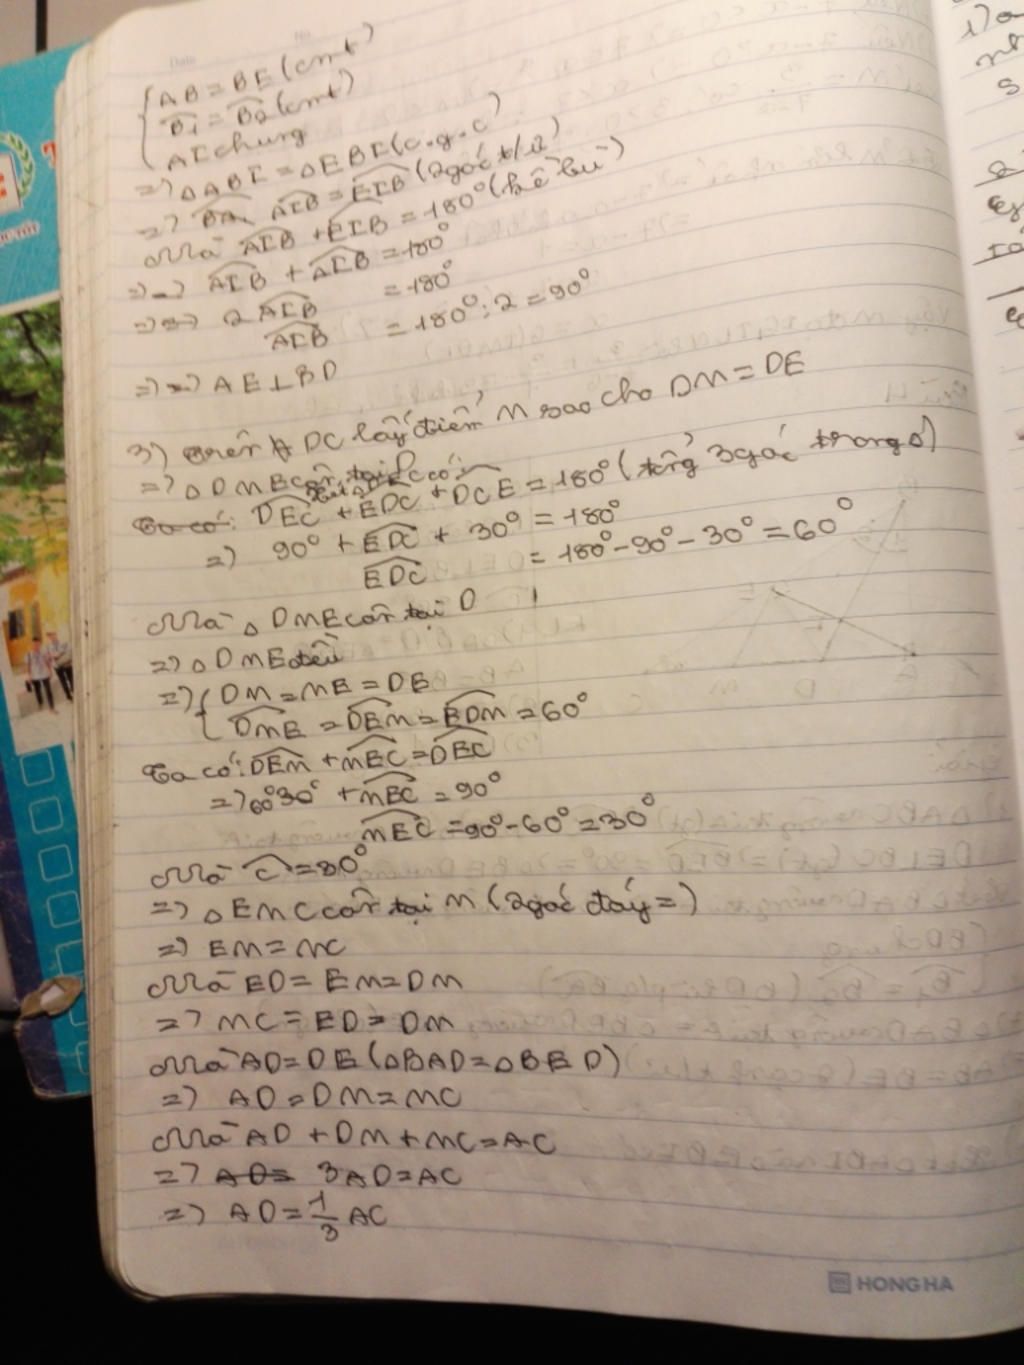 AB = BE (cmt)
B₁ = B₂ (cmt)
AI chung
=> ΔABI = ΔEBI (c.g.c)
=> AIB = EIB (2 góc t/ư)
Mà AIB + EIB = 180° (kề bù)
=> AIB + AIB = 180°
=> 2AIB = 180°
AIB = 180° : 2 = 90°
=> AE ⊥ BD
3) Trên DC lấy điểm M sao cho DM = DE
=> Δ DME cân tại D
DEC + EDC + DCE = 180° (tổng 3 góc trong Δ)
=> 90° + EDC + 30° = 180°
EDC = 180° - 90° - 30° = 60°
Mà Δ DME cân tại D
=> Δ DME đều
=> { DM = ME = DE
DME = DEM = EDM = 60°
Ta có: DEM + MEC = DEC
=> 60° + MEC = 90°
MEC = 90° - 60° = 30°
Mà C = 30°
=> Δ EMC cân tại M (2 góc đáy =)
=> EM = MC
Mà ED = EM = DM
=> MC = ED = DM
Mà AD = DE (ΔBAD = ΔBED)
=> AD = DM = MC
Mà AD + DM + MC = AC
=> 3AD = AC
=> AD = 1/3 AC
HONG HA